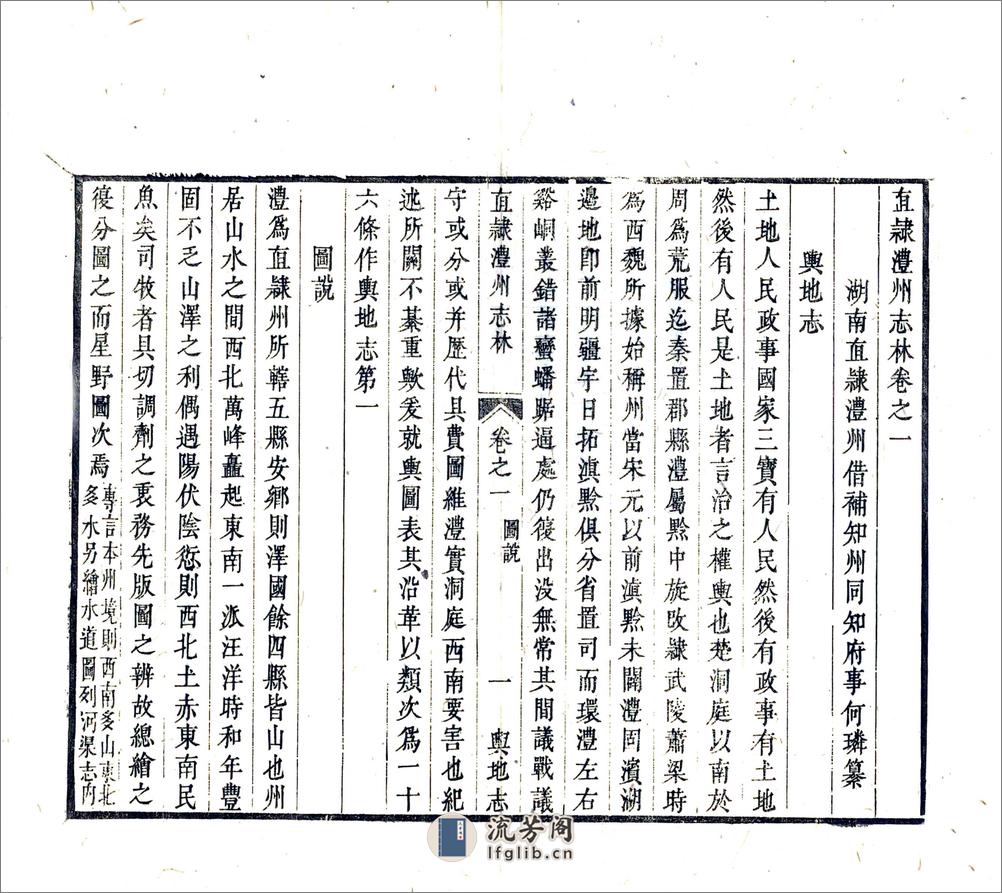 直隷澧州志林卷之一
湖南直隷澧州借補知州同知府事何璘纂
輿地志
土地人民政事國家三寶有人民然後有政事有土地
然後有人民是土地者言治之權輿也楚洞庭以南於
周爲荒服迄秦置郡縣澧屬黔中旋改隷武陵蕭梁時
爲西魏所據始稱州當宋元以前滇黔未闢澧固濱湖
邉地即前明疆宇日拓滇黔俱分省置司而環澧左右
谿峒叢錯諸蠻蟠踞逼處仍復出没無常其間議戰議
直隷澧州志林
卷之一
圖説
一
輿地志
守或分或并歷代具費圖維澧實洞庭西南要害也紀
述所關不綦重歟爰就輿圖表其沿革以類次爲一十
六條作輿地志第一
圖説
澧爲直隷州所轄五縣安鄉則澤國餘四縣皆山也州
居山水之間西北萬峰矗起東南一派汪洋時和年豐
固不乏山澤之利偶遇陽伏陰愆則西北土赤東南民
魚矣司牧者具切調劑之衷務先版圖之辨故總繪之
復分圖之而星野圖次焉
專言本州境則西南多山東北
多水另繪水道圖列河渠志内
流芳阁
lfglib.cn